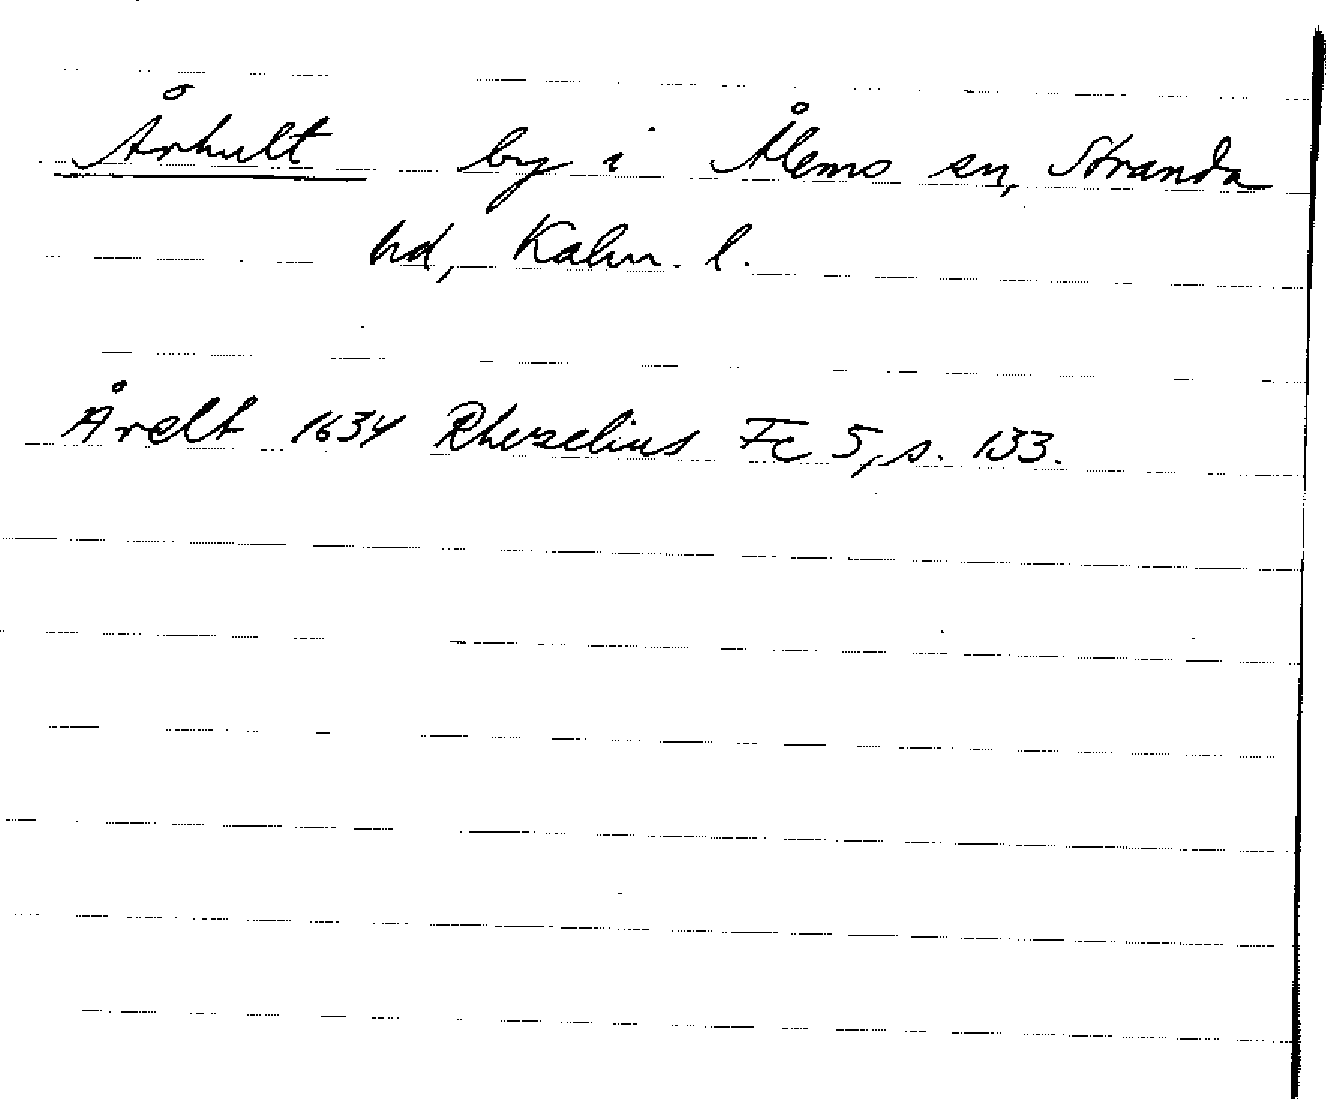 Århult by i Ålems sn, Stranda
hd, Kalm. l.
Årelt 1634 Rhezelius Fc 5, s. 133.